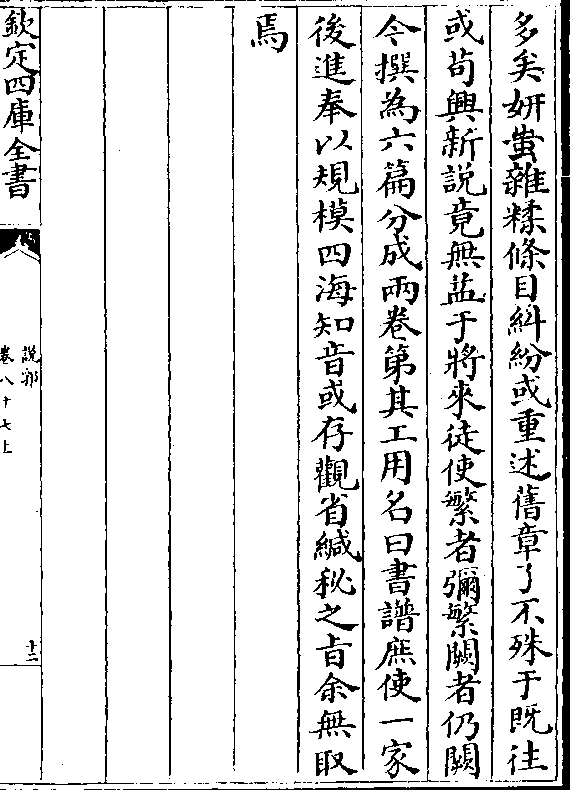 多矣妍蚩雜糅條目糾紛或重述舊章了不殊于既往
或茍興新説竟無益于將來徒使繁者彌繁闕者仍闕
今撰為六篇分成兩卷第其工用名曰書譜庶使一家
後進奉以規模四海知音或存觀省緘秘之㫖余無取
焉
欽定四庫全書
説郛
卷八十七上
十二